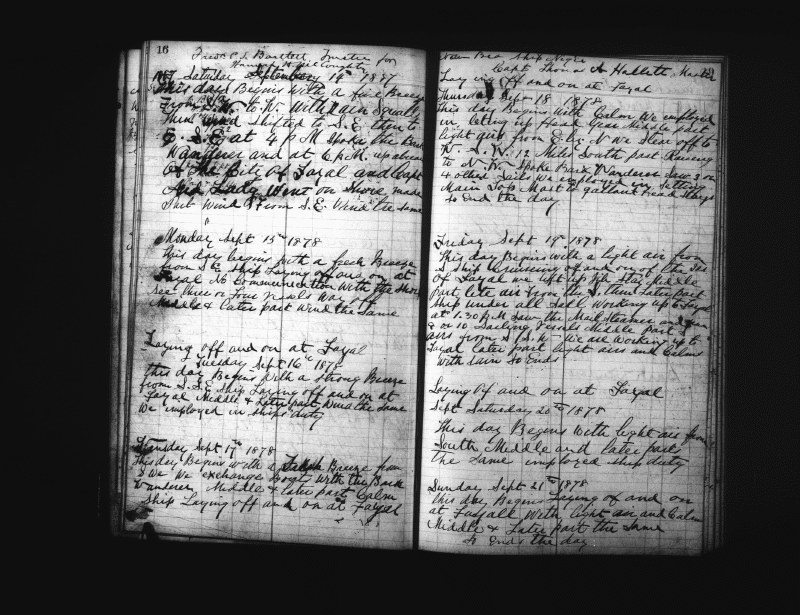 16
P. L. Bartlett for
Saturday September 14th 1877
This day Begins with a fresh Breeze
From to W. With rain Squally
then wind Shifted to S.E. then to
E. S.E. at 4 P M Spoke the Bark
Wanderer and at 6 P.M. up abreast
Of the City of Fayal and Capt
And Lady Went on Shore made
Wind From S.E. Wind the same
Monday Sept 15th 1878
This day begins with a fresh Breeze
From S E Ship Laying off and on at
Fayal No Communication With the Shore
See three or four vessels way off
Middle & Later part wind the Same
Laying off and on at Fayal
Tuesday Sept 16th 1878
this day Begins With a strong Breeze
from S.S.E. Ship Laying off and on at
Fayal Middle & Later part Wind the Same
We employed in ships duty
Sept 17th 1878
This day Begins with a Breeze from
S We We exchange Boats With the Bark
Wanderer Middle & Later part Calm
Ship Laying off and on at Fayal
Ship
Capt Thomas A Hallett Master
Laying off and on at Fayal
Thursday Sept 18 1878
this day Begins With Calm We employed
in Middle part
light airs from E by N We Stear off to
W. S. W. 12 Miles South part
to N. W. Spoke Bark Wanderer Saw 3 or
4 other Sails We employed in Setting
Main Top Mast to gallant head Stays
So End the day
Friday Sept 19th 1878
This day Begins With a light air from
S Ship Cruising of and on of the
Of Fayal We Middle
part lite air from then later part
Ship under all Sail Working up to Fayal
at 1.30 P.M Saw the Mail Steamer
& 8 or 10 Sailing Vessels Middle part
airs from S. S. W. We are Working up to
Fayal Later part light airs and Calms
With rain So Ends
Laying Of and on at Fayal
Sept Saturday 20th 1878
This day Begins With light air from
South Middle and Later part
the same employed ship duty
Sunday Sept 21th 1878
this day Begins Laying of and on
at Fayall With light air and Calm
Middle & Later part the same
So Ends the day